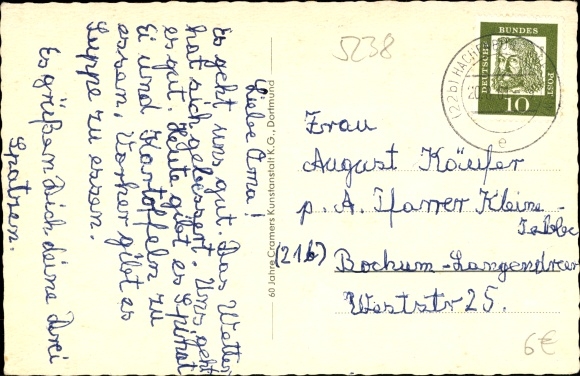 Liebe Oma!
Es geht uns gut. Das Wetter
hat sich gebessert. Uns geht
es gut. Heute gibt es Spinat
Ei und Kartoffeln zu
essen. Vorher gibt es
Suppe zu essen.
Es grüßen Dich deine Drei
Spatzen
60 Jahre Cramers Kunstanstalt K.G., Dortmund
5238
DEUTSCHE
BUNDES
POST
10
(22b) HACHENBURG
e
Frau
August Käufer
p. A. Pfarrer Kleine-
(21b) Bochum-Langendreer
Weststr 25.
6€